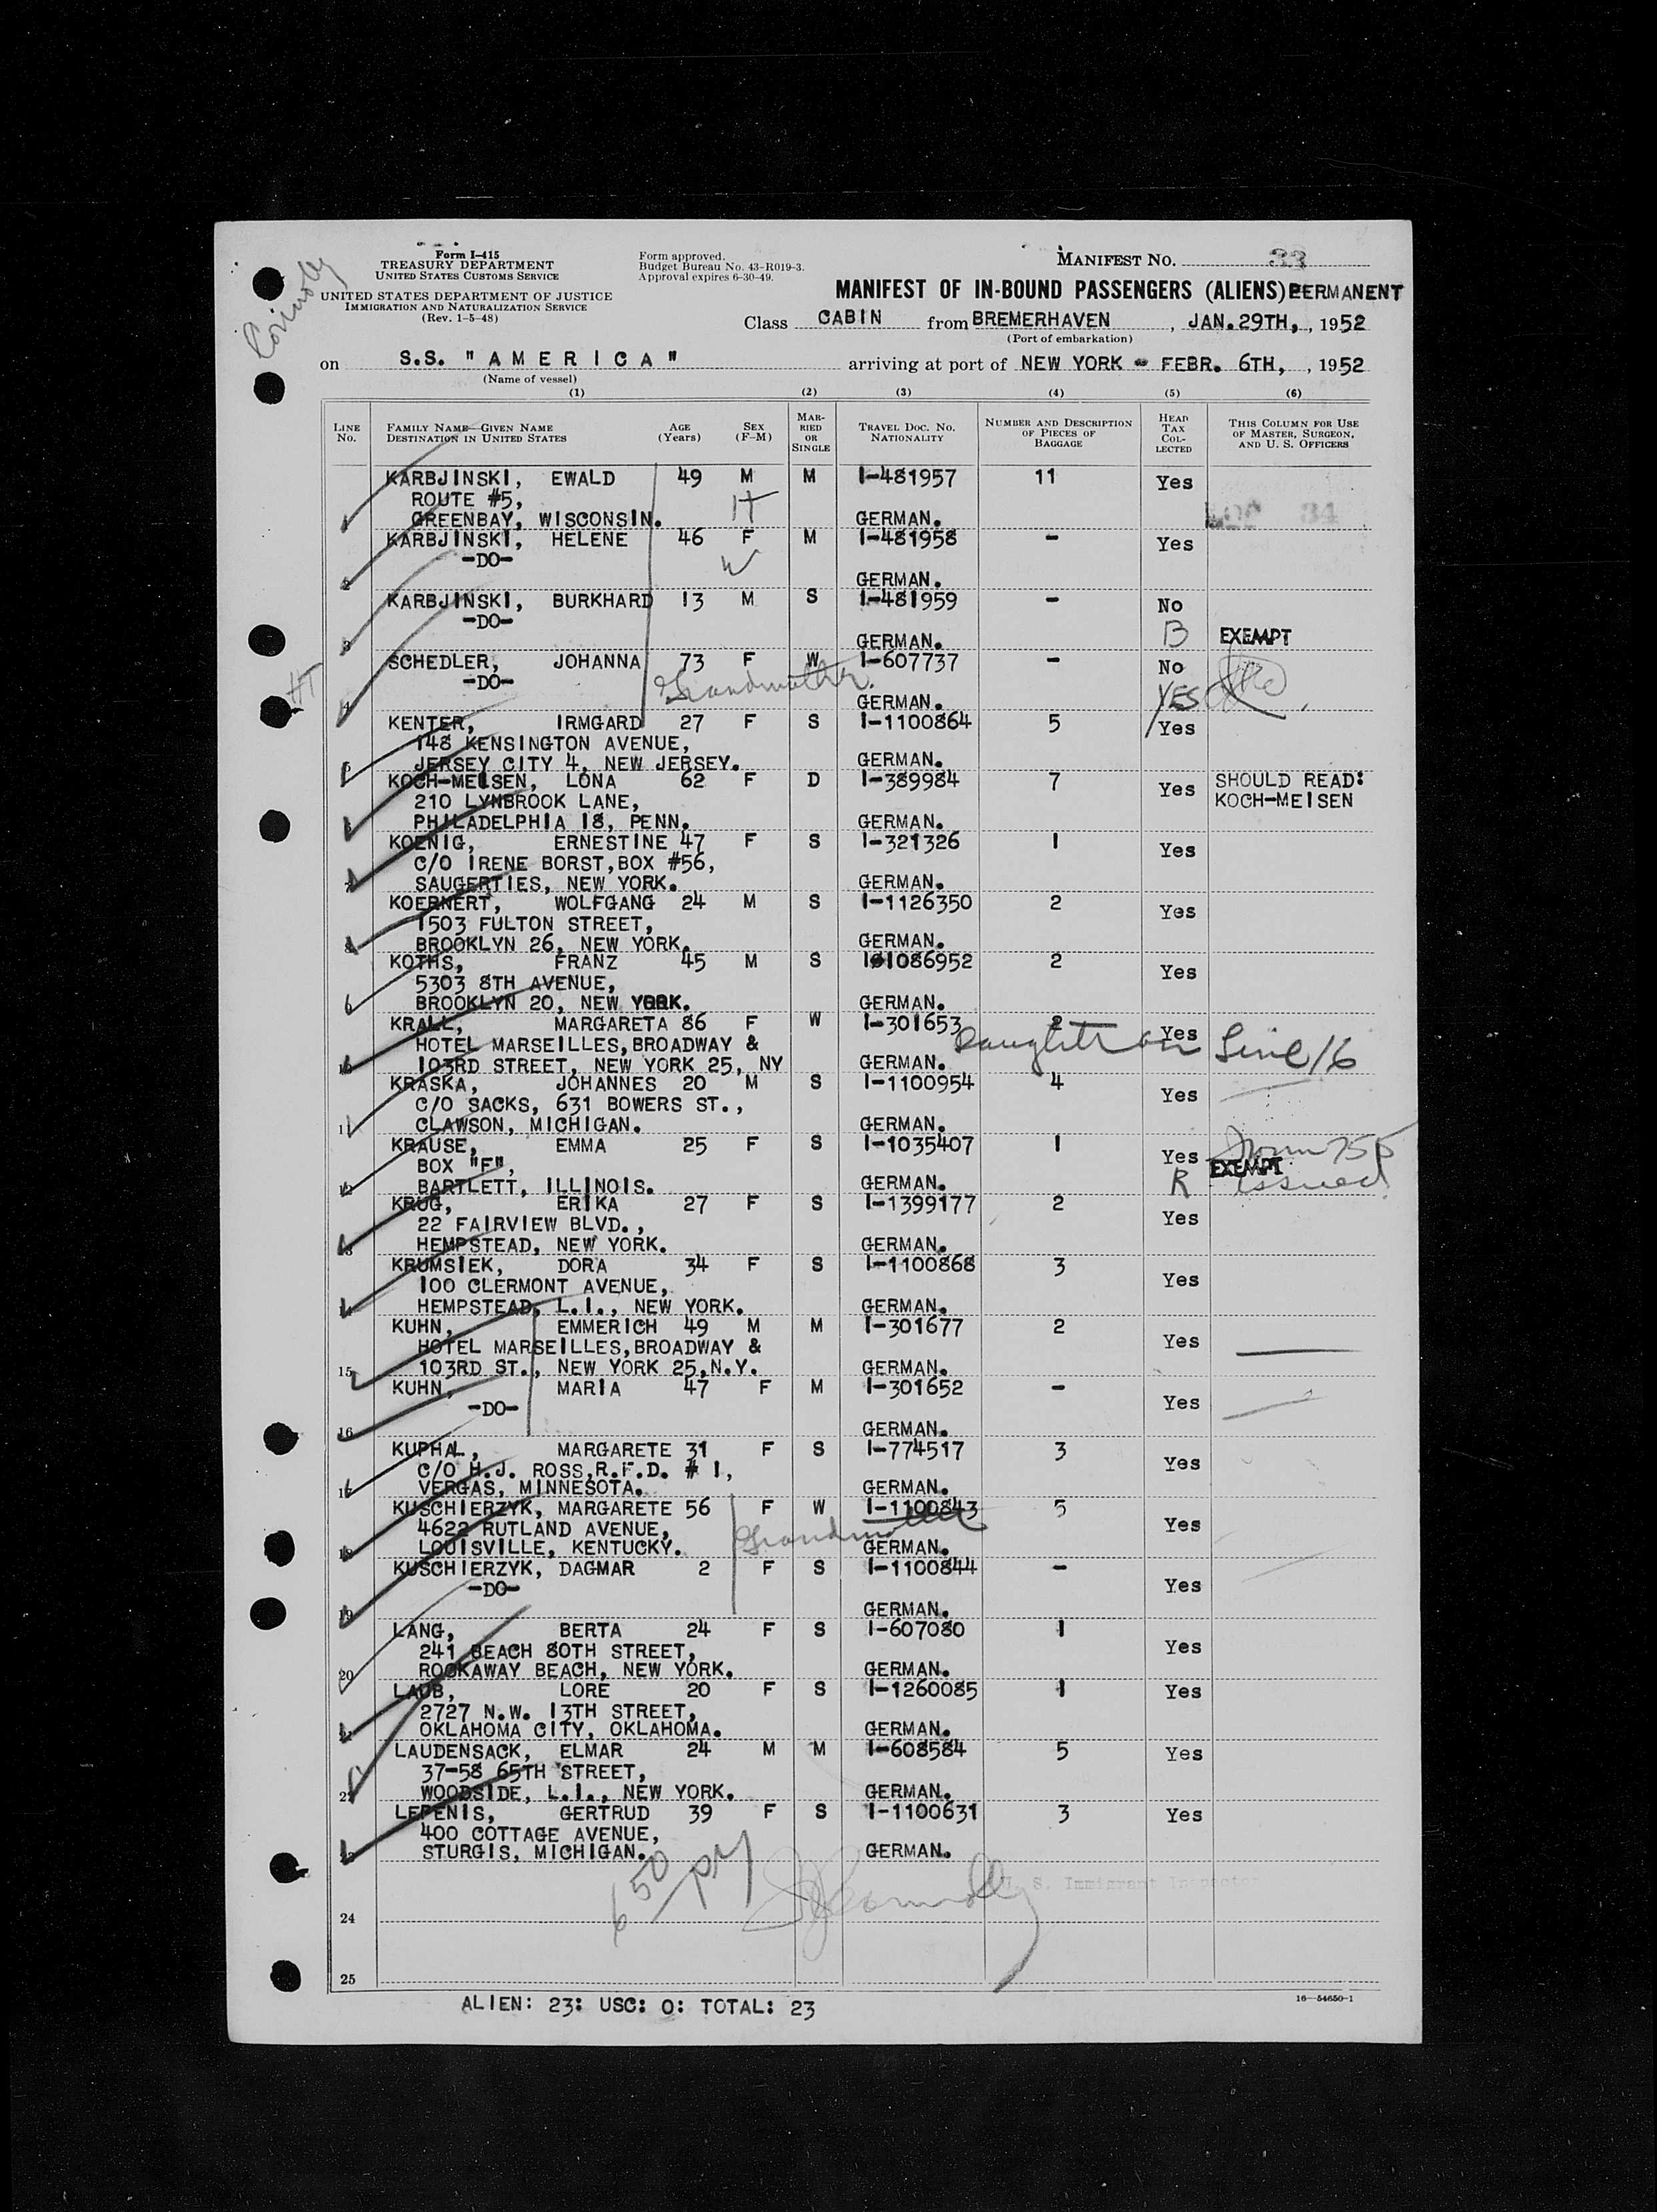 Connolly
Form I-415
TREASURY DEPARTMENT
UNITED STATES CUSTOMS SERVICE
UNITED STATES DEPARTMENT OF JUSTICE
IMMIGRATION AND NATURALIZATION SERVICE
(Rev. 1-5-48)
Form approved.
Budget Bureau No. 43-R019-3.
Approval expires 6-30-49.
MANIFEST NO. 33
MANIFEST OF IN-BOUND PASSENGERS (ALIENS) PERMANENT
Class CABIN from BREMERHAVEN, JAN.29TH, 1952
(Port of embarkation)
on S.S. "AMERICA" arriving at port of NEW YORK - FEBR. 6TH, 1952
(Name of vessel)
(1) (2) (3) (4) (5) (6)
LINE No. FAMILY NAME—GIVEN NAME DESTINATION IN UNITED STATES AGE (Years) SEX (F-M) MARRIED OR SINGLE TRAVEL DOC. NO. NATIONALITY NUMBER AND DESCRIPTION OF PIECES OF BAGGAGE HEAD TAX COLLECTED THIS COLUMN FOR USE OF MASTER, SURGEON, AND U. S. OFFICERS
1 KARBJINSKI, EWALD 49 M M I-481957 11 Yes
ROUTE #5, H
GREENBAY, WISCONSIN. GERMAN.
KARBJINSKI, HELENE 46 F M I-481958 - Yes
-DO- W
2 GERMAN.
KARBJINSKI, BURKHARD 13 M S I-481959 - No
-DO-
3 GERMAN. B EXEMPT
SCHEDLER, JOHANNA 73 F W I-607737 - No
-DO- Grandmother
4 GERMAN. YES
KENTER, IRMGARD 27 F S I-1100864 5 Yes
148 KENSINGTON AVENUE,
5 JERSEY CITY 4, NEW JERSEY. GERMAN.
KOCH-MEISEN, LONA 62 F D I-389984 7 Yes SHOULD READ:
210 LYNBROOK LANE, KOCH-MEISEN
PHILADELPHIA 18, PENN. GERMAN.
KOENIG, ERNESTINE 47 F S I-321326 1 Yes
C/O IRENE BORST,BOX #56,
SAUGERTIES, NEW YORK. GERMAN.
KOERNERT, WOLFGANG 24 M S I-1126350 2 Yes
1503 FULTON STREET,
8 BROOKLYN 26, NEW YORK. GERMAN.
KOTHS, FRANZ 45 M S 1-1086952 2 Yes
5303 8TH AVENUE,
BROOKLYN 20, NEW YORK. GERMAN.
KRALL, MARGARETA 86 F W I-301653 2 Yes
HOTEL MARSEILLES,BROADWAY & Daughter on Line 16
10 103RD STREET, NEW YORK 25, NY GERMAN.
KRASKA, JOHANNES 20 M S I-1100954 4 Yes
C/O SACKS, 631 BOWERS ST.,
11 CLAWSON, MICHIGAN. GERMAN.
KRAUSE, EMMA 25 F S I-1035407 1 Yes Form 755
BOX "F", EXEMPT
12 BARTLETT, ILLINOIS. GERMAN. R issued
KRUG, ERIKA 27 F S I-1399177 2 Yes
22 FAIRVIEW BLVD.,
13 HEMPSTEAD, NEW YORK. GERMAN.
KRUMSIEK, DORA 34 F S I-1100868 3 Yes
100 CLERMONT AVENUE,
14 HEMPSTEAD, L.I., NEW YORK. GERMAN.
KUHN, EMMERICH 49 M M I-301677 2 Yes
HOTEL MARSEILLES,BROADWAY &
15 103RD ST., NEW YORK 25,N.Y. GERMAN.
KUHN, MARIA 47 F M I-301652 - Yes
-DO-
16 GERMAN.
KUPHAL, MARGARETE 31 F S I-774517 3 Yes
C/O H.J. ROSS,R.F.D. # 1,
17 VERGAS, MINNESOTA. GERMAN.
KUSCHIERZYK, MARGARETE 56 F W I-1100843 5 Yes
4622 RUTLAND AVENUE, Grandmother
18 LOUISVILLE, KENTUCKY. GERMAN.
KUSCHIERZYK, DAGMAR 2 F S I-1100844 - Yes
-DO-
19 GERMAN.
LANG, BERTA 24 F S I-607080 1 Yes
241 BEACH 80TH STREET,
20 ROCKAWAY BEACH, NEW YORK. GERMAN.
LAUB, LORE 20 F S I-1260085 1 Yes
2727 N.W. 13TH STREET,
OKLAHOMA CITY, OKLAHOMA. GERMAN.
LAUDENSACK, ELMAR 24 M M I-608584 5 Yes
37-58 65TH STREET,
22 WOODSIDE, L.I., NEW YORK. GERMAN.
LEPENIS, GERTRUD 39 F S I-1100631 3 Yes
400 COTTAGE AVENUE,
STURGIS, MICHIGAN. GERMAN.
650 pm Connolly
U. S. Immigrant Inspector
24
25
ALIEN: 23: USC: 0: TOTAL: 23
16-54650-1